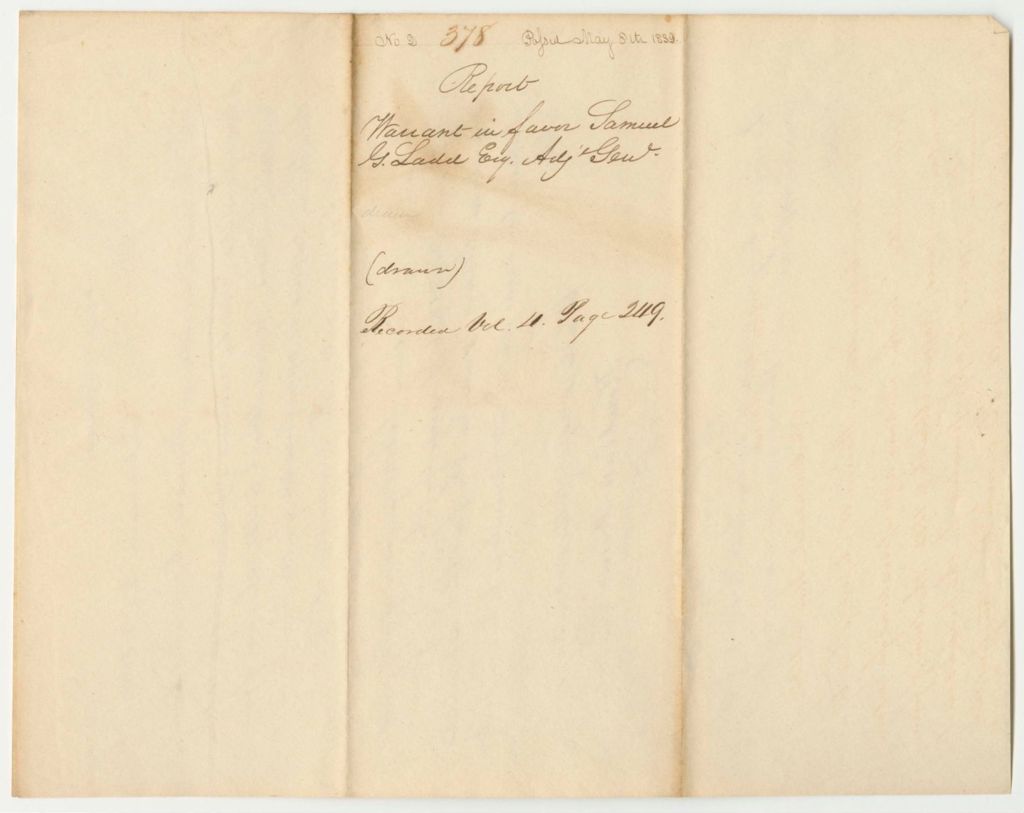 No 2 378 Passed May 8th 1832.
Report
Warrant in favor Samuel
G. Ladd Esq. Adjt Genl.
drawn
(drawn)
Recorded Vol. 4. Page 249.